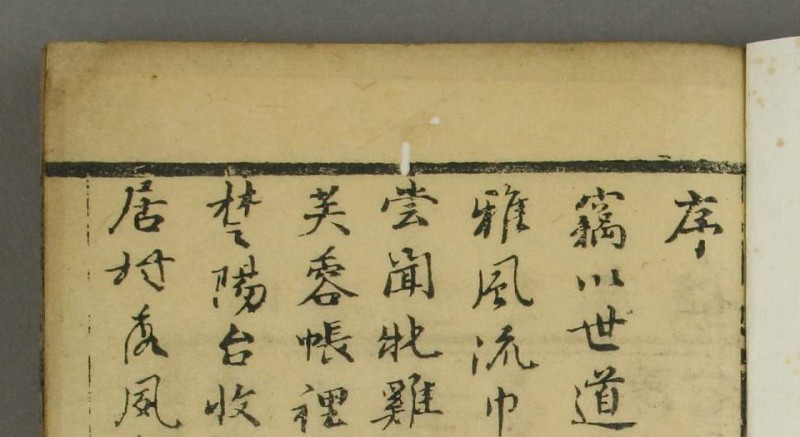 序
竊以世道
雅風流巾
嘗聞牝雞
芙蓉帳裡
楚陽台收
居村 風